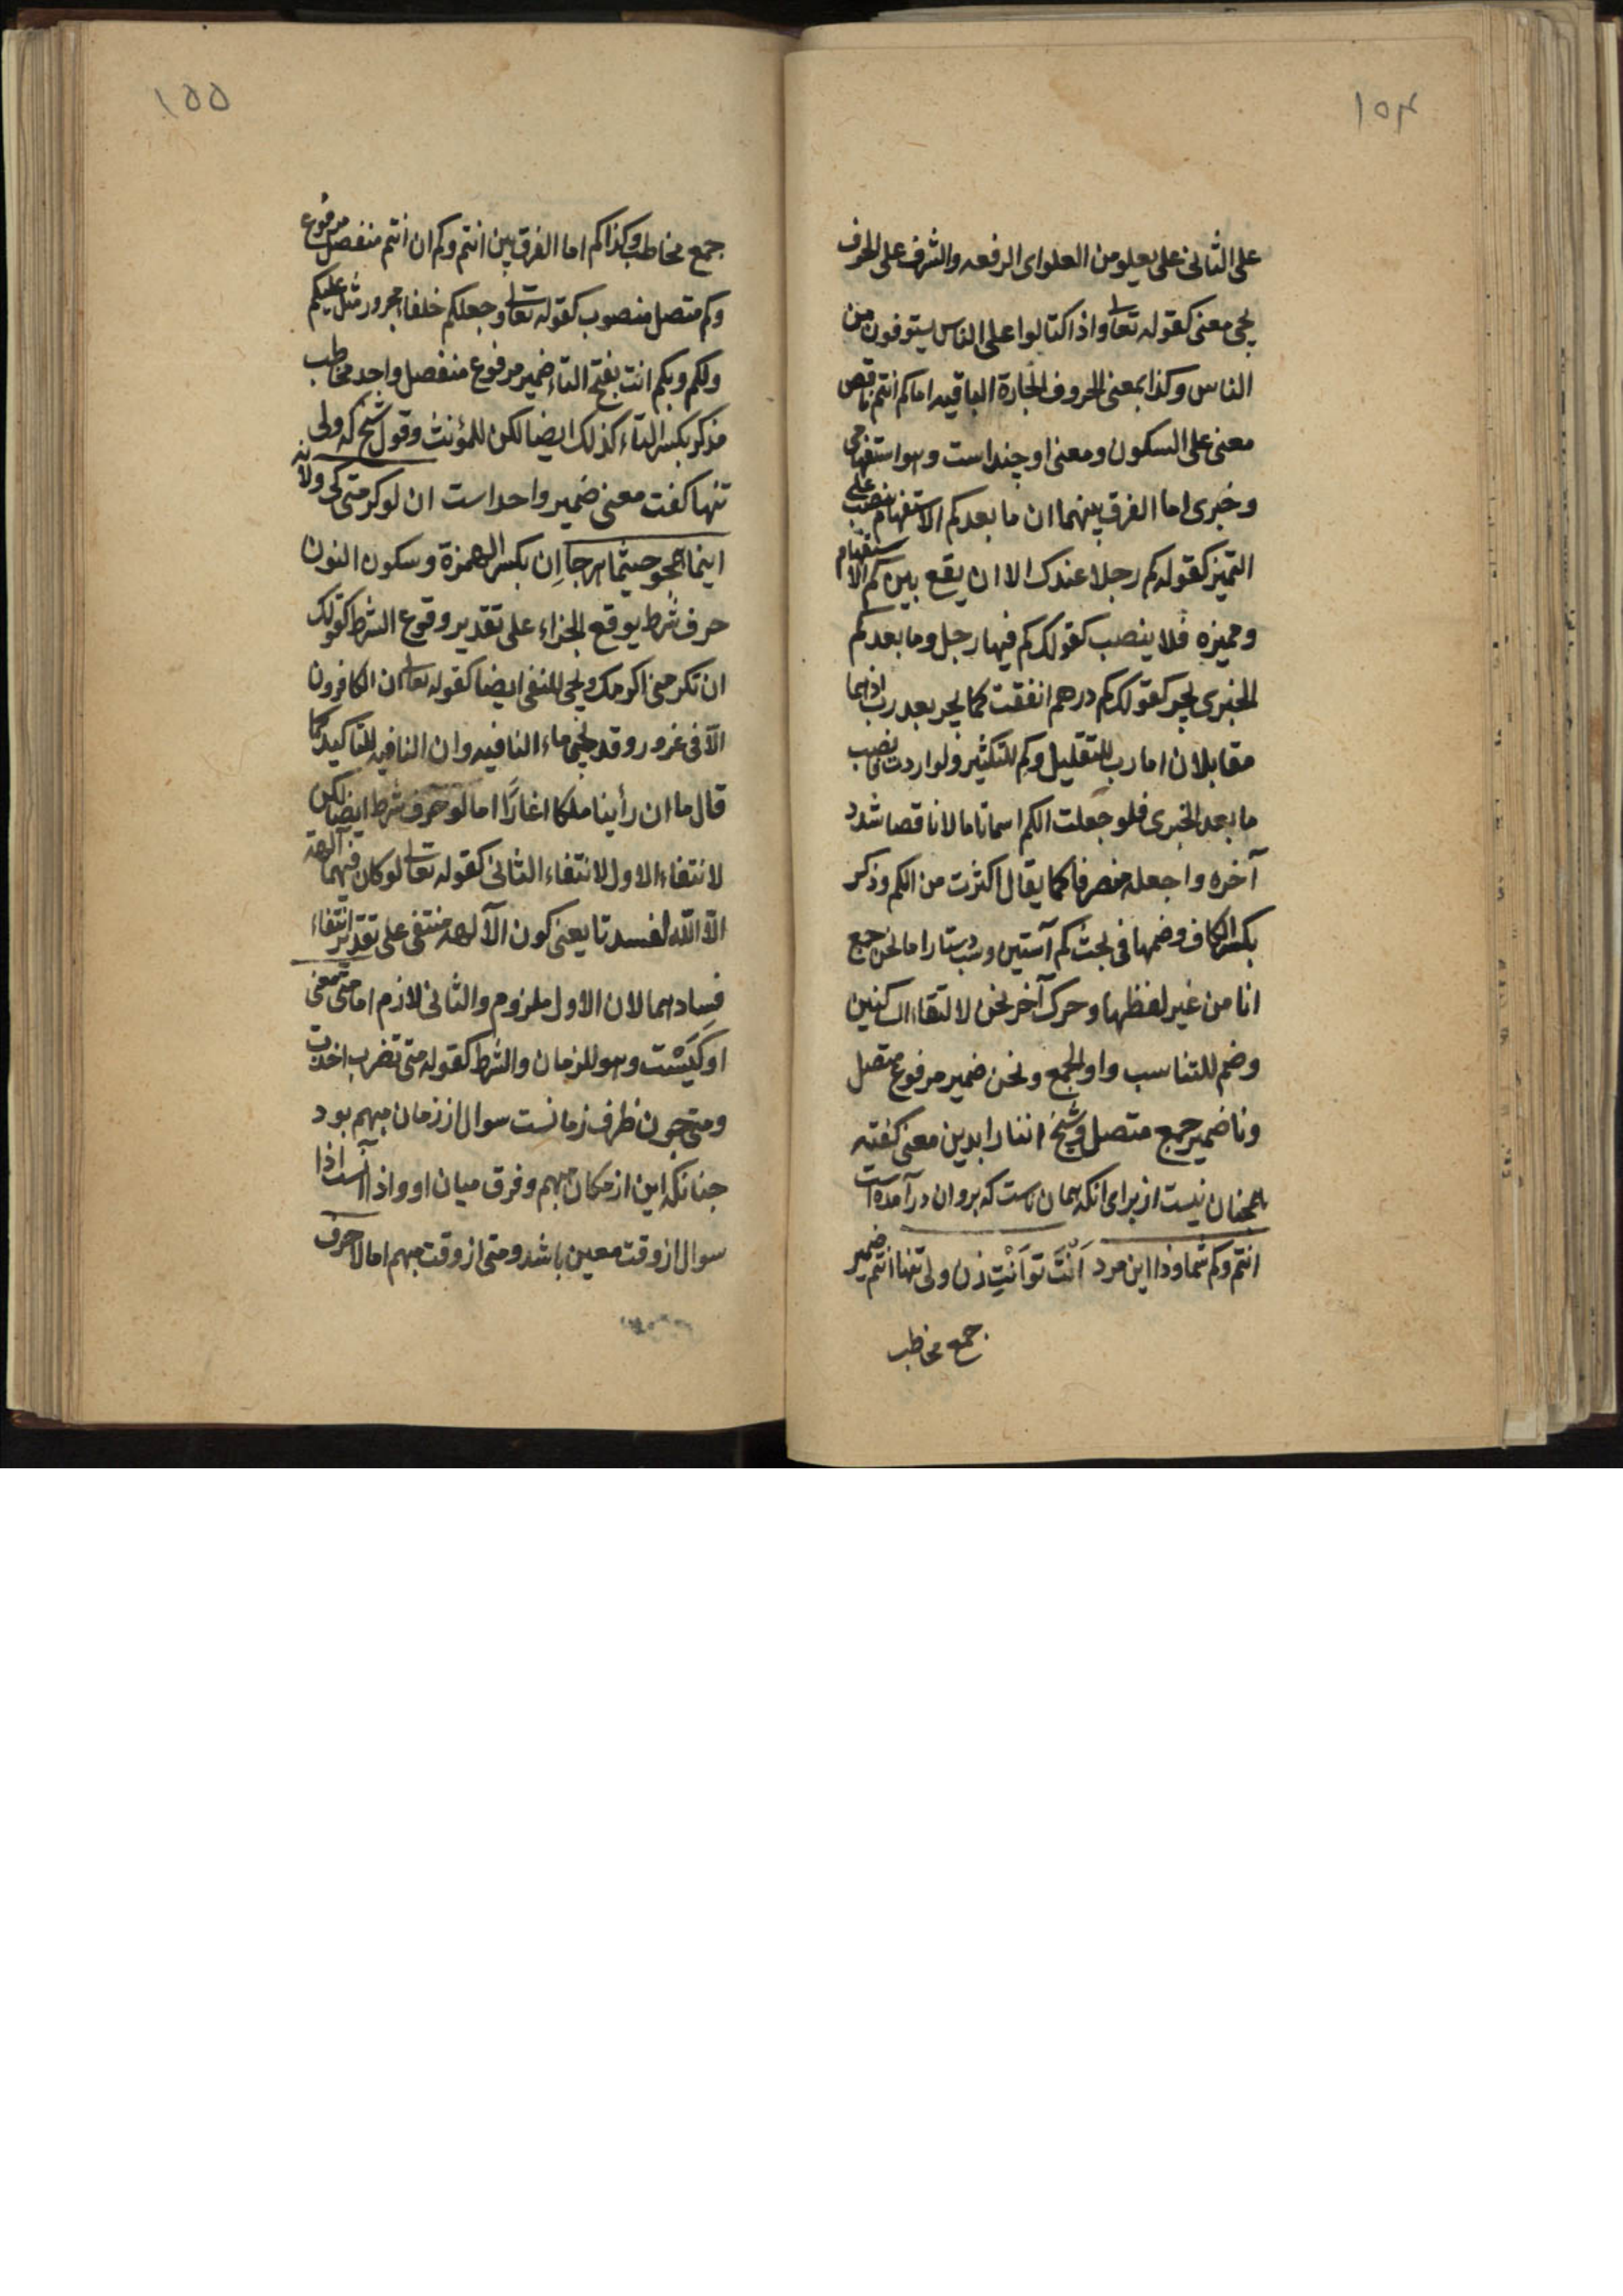 ۱۵۴
على الثانى على يعلو من العلو اى الرفعه والشرف على الحرف
يجى معنى كقوله تعالى واذا اكتالوا على الناس يستوفون من
الناس وكذا بمعنى الحروف الجارة الباقيه اما كم انتم ناقص
معنى على السكون ومعنى او چند است وهو استفهامى
وخبرى اما الفرق بينهما ان ما بعد كم الاستفهام ينصب على
التميز كقوله كم رجلا عندك الا ان يقع بين كم الاستفهام
ومميزه فلا ينصب كقولك كم فيها رجل وما بعد كم
الخبرى يجر كقولك كم درهم انفقت كما يجر بعد رب اذ هما
متقابلان اما رب للتقليل وكم للتكثير ولو اردت نصب
ما بعد الخبرى فلو جعلت الكم اسما تاما لا ناقصا شدد
آخره واجعله منصرفا كما يقال اكثرت من الكم وذكر
بكسر الكاف وضمها فى بحث كم آستين وشب دستار اما نحن جمع
انا من غير لفظها وحرك آخر نحن لالتقاء الساكنين
وضم للتناسب واو الجمع ونحن ضمير مرفوع منفصل
ونا ضمير جمع متصل وشيخ اننا را بدين معنى كفته
همچنان نيست از براى انكه همان ناست كه بر و ان در آمده است
انتم وكم شما وذا اين مرد اَنْتَ تو اَنْتِ زن ولى تنها انتم ضمير
جمع مخاطب
۱۵۵
جمع مخاطب وكذا كم اما الفرق بين انتم وكم ان انتم منفصل مرفوع
وكم متصل منصوب كقوله تعالى وجعلكم خلفاء مجرور مثل عليكم
ولكم وبكم انت بفتح التاء ضمير مرفوع منفصل واحد مخاطب
مذكر بكسر التاء كذلك ايضا لكن للمؤنث وقول شيخ كه ولى
تنها كفت معنى ضمير واحد است ان لو كر متى كى ولا نه
اينما هجو حيثما هر جا اِن بكسر الهمزة وسكون النون
حرف شرط يوقع الجزاء على تقدير وقوع الشرط كقولك
ان تكرمنى اكرمك ويجى للنفى ايضا كقوله تعالى ان الكافرون
الا فى غرور وقد يجى ماء النافيه وان النافيه للتاكيد كما
قال ما ان رأينا ملكا اغارَا اما لو حرف شرط ايضا لكن
لانتفاء الاول لانتفاء الثانى كقوله تعالى لو كان فيهما آلهة
الا الله لفسدتا يعنى كون الآلهه منتفى على تقدير انتفاء
فسادهما لان الاول ملزوم والثانى لازم اما متى معنى
او كَيَسْت وهو للزمان والشرط كقوله متى تضرب اضرب
ومتى چون ظرف زمانست سوال از زمان مبهم بود
چنانكه اين از مكان مبهم وفرق ميان او واذا آنست اذا
سوال از وقت معين باشد ومتى از وقت مبهم اما لا حرف